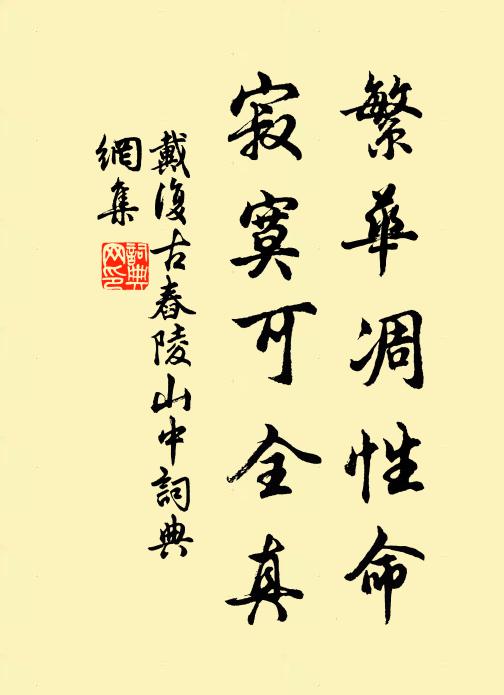 繁華凋性命
寂寞可全真
戴復古舂陵山中詞典
網集
詞典網印